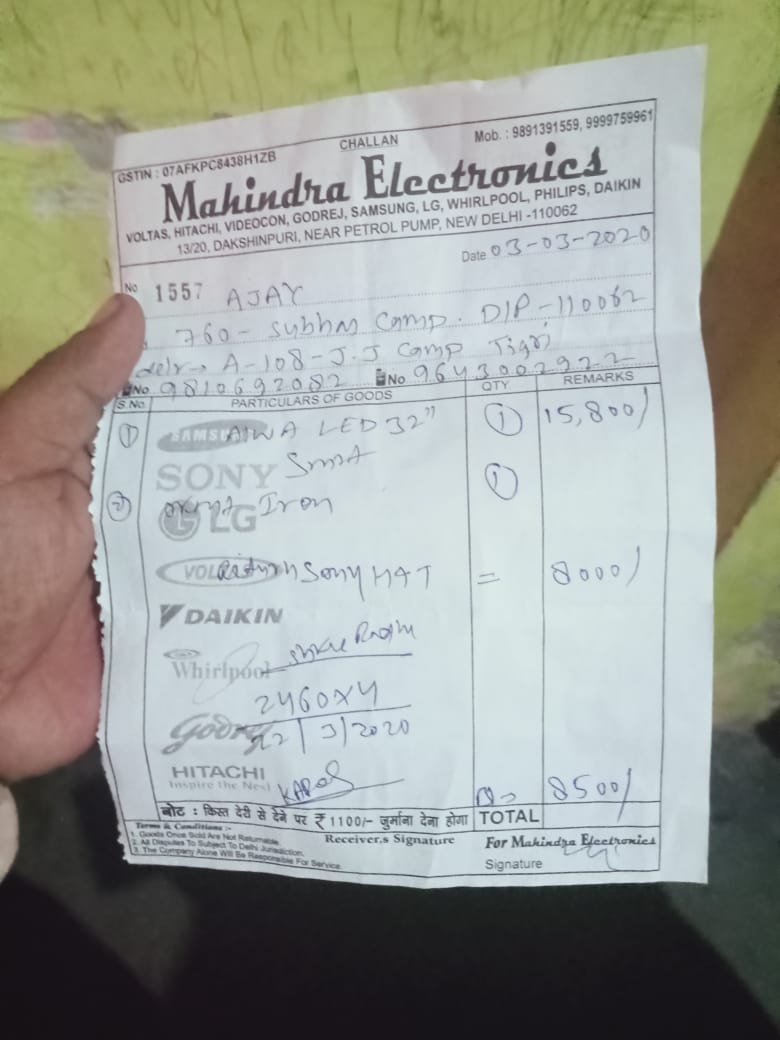 GSTIN : 07AFKPC8438H1ZB CHALLAN Mob. : 9891391559, 9999759961
Mahindra Electronics
VOLTAS, HITACHI, VIDEOCON, GODREJ, SAMSUNG, LG, WHIRLPOOL, PHILIPS, DAIKIN
13/20, DAKSHINPURI, NEAR PETROL PUMP, NEW DELHI -110062
Date 03-03-2020
No 1557 AJAY
760- Subhas Camp. D/P-110062
A-108-J.J Camp Tigri
No. 9810692082 No 9643002922
S.No. PARTICULARS OF GOODS QTY. REMARKS
1 SAMSUNG AIWA LED 32" 1 15,800/
SONY 1
2 Iron
LG
VOLTAS Return Sony = 8000/
DAIKIN
Whirlpool
2460x4
Godrej 22/3/2020
HITACHI
Inspire the Next
8500/
नोट : किस्त देरी से देने पर ₹ 1100/- जुर्माना देना होगा TOTAL
Terms & Conditions :-
1. Goods Once Sold Are Not Returnable.
2. All Disputes To Subject To Delhi Jurisdiction.
3. The Company Alone Will Be Responsible For Service.
Receiver,s Signature
For Mahindra Electronics
Signature